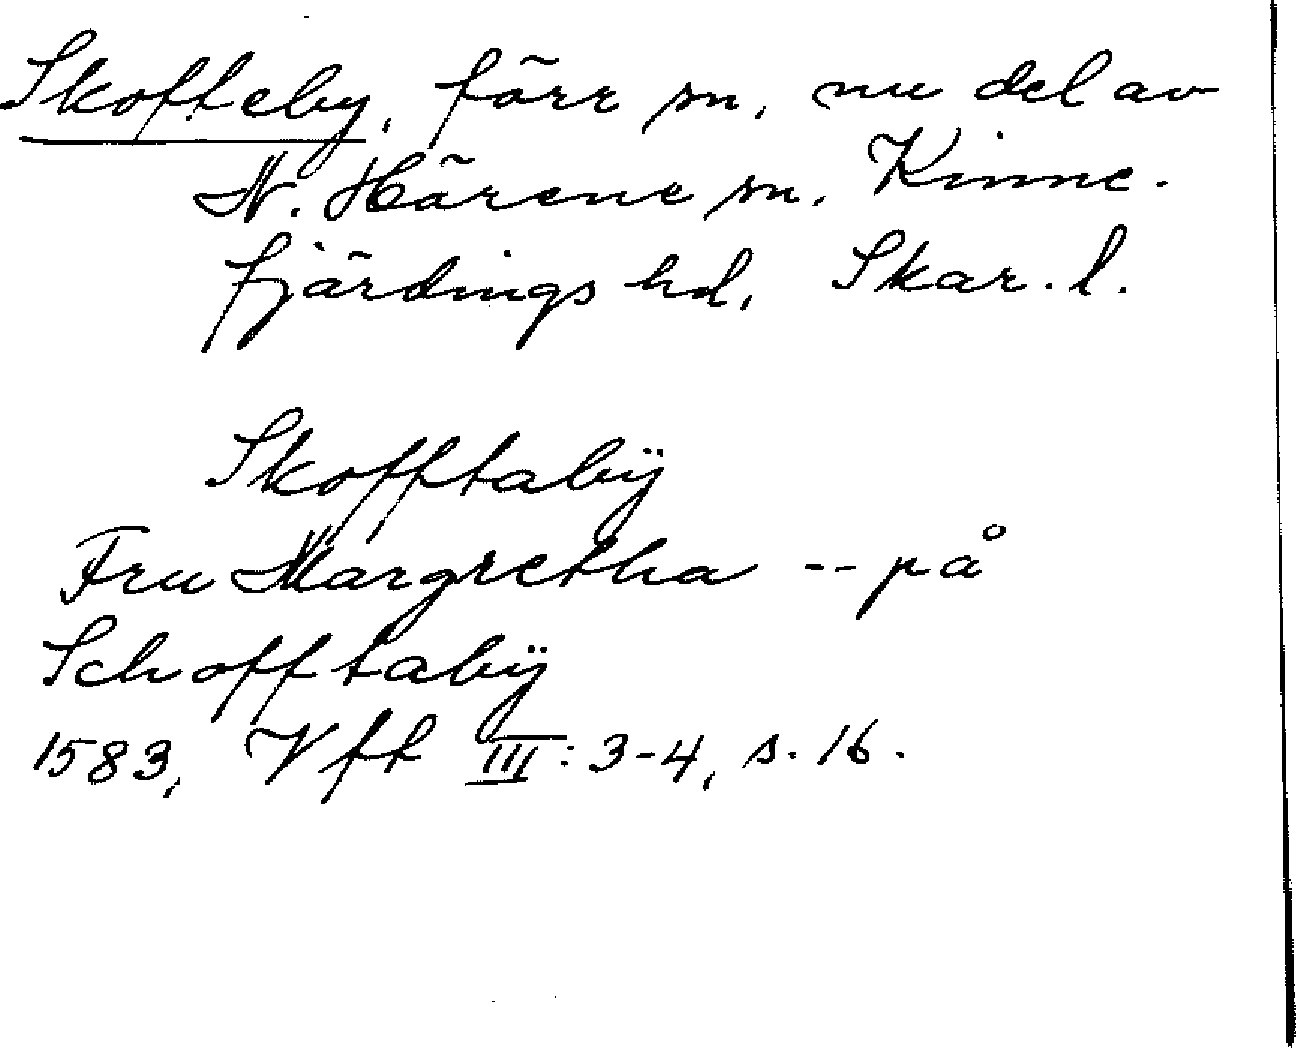 Skofteby, förr sn, nu del av
N. Härene sn. Kinne-
fjärdings hd, Skar. l.
Skofftabÿ
Fru Margretha -- på
Schofftabÿ
1583, Vft III: 3-4, s. 16.